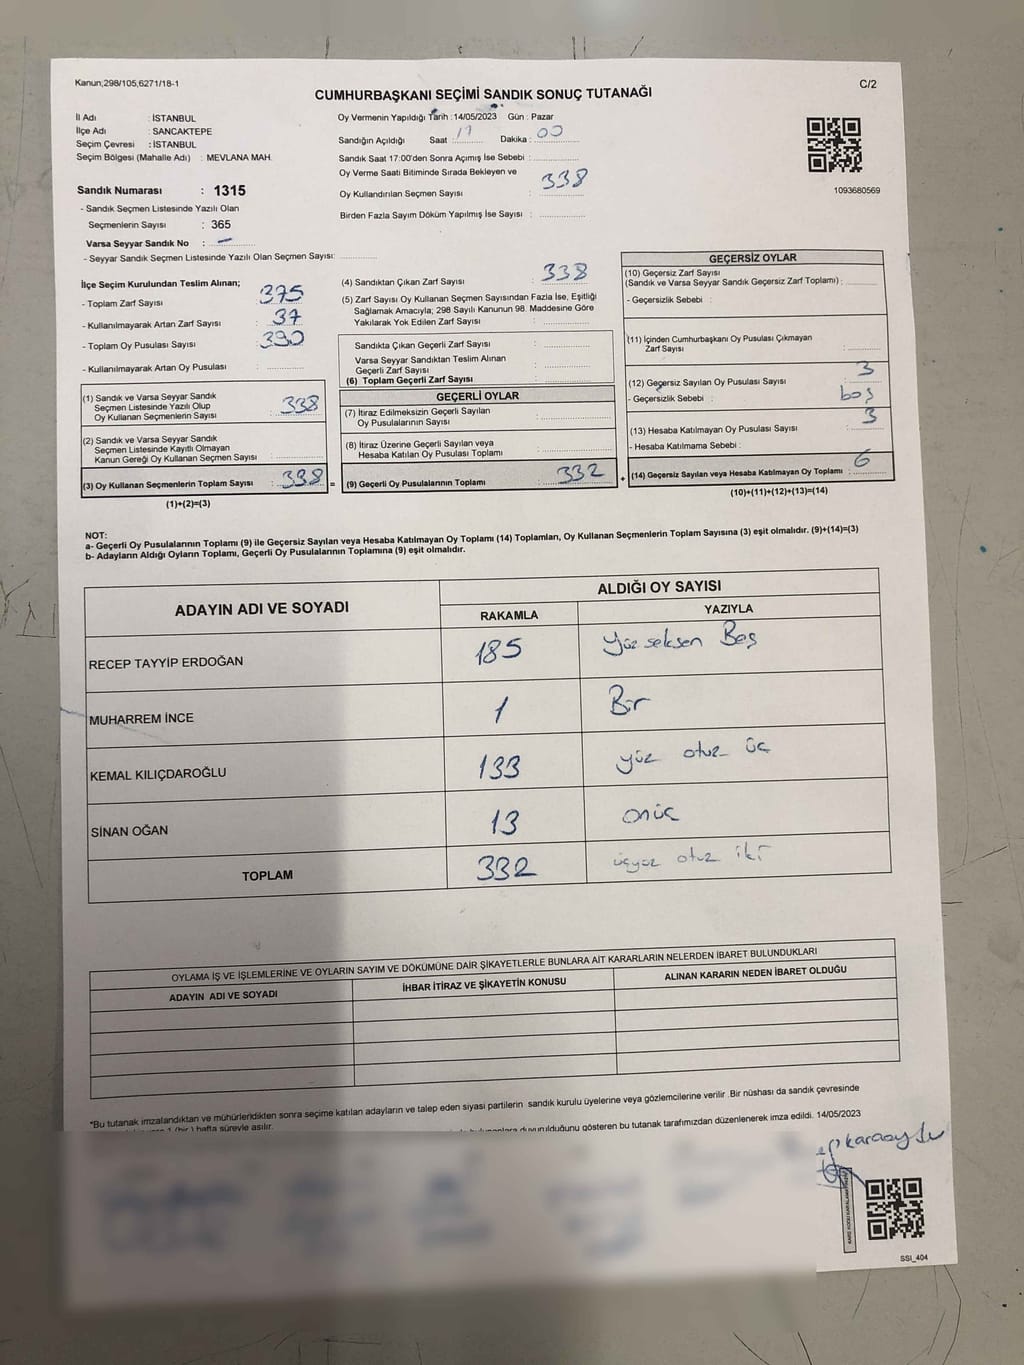 Kanun;298/105;6271/18-1
C/2
CUMHURBAŞKANI SEÇİMİ SANDIK SONUÇ TUTANAĞI
İl Adı : İSTANBUL
İlçe Adı : SANCAKTEPE
Seçim Çevresi : İSTANBUL
Seçim Bölgesi (Mahalle Adı) : MEVLANA MAH.
Sandık Numarası : 1315
- Sandık Seçmen Listesinde Yazılı Olan
Seçmenlerin Sayısı : 365
Varsa Seyyar Sandık No : -
- Seyyar Sandık Seçmen Listesinde Yazılı Olan Seçmen Sayısı:
Oy Vermenin Yapıldığı Tarih : 14/05/2023 Gün : Pazar
Sandığın Açıldığı Saat : 17 Dakika : 00
Sandık Saat 17:00'den Sonra Açımış İse Sebebi :
Oy Verme Saati Bitiminde Sırada Bekleyen ve
Oy Kullandırılan Seçmen Sayısı : 338
Birden Fazla Sayım Döküm Yapılmış İse Sayısı :
1093680569
İlçe Seçim Kurulundan Teslim Alınan;
- Toplam Zarf Sayısı : 375
- Kullanılmayarak Artan Zarf Sayısı : 37
- Toplam Oy Pusulası Sayısı : 390
- Kullanılmayarak Artan Oy Pusulası :
(1) Sandık ve Varsa Seyyar Sandık
Seçmen Listesinde Yazılı Olup
Oy Kullanan Seçmenlerin Sayısı : 338
(2) Sandık ve Varsa Seyyar Sandık
Seçmen Listesinde Kayıtlı Olmayan
Kanun Gereği Oy Kullanan Seçmen Sayısı :
(3) Oy Kullanan Seçmenlerin Toplam Sayısı : 338 =
(1)+(2)=(3)
(4) Sandıktan Çıkan Zarf Sayısı : 338
(5) Zarf Sayısı Oy Kullanan Seçmen Sayısından Fazla İse, Eşitliği
Sağlamak Amacıyla; 298 Sayılı Kanunun 98. Maddesine Göre
Yakılarak Yok Edilen Zarf Sayısı :
Sandıkta Çıkan Geçerli Zarf Sayısı :
Varsa Seyyar Sandıktan Teslim Alınan
Geçerli Zarf Sayısı :
(6) Toplam Geçerli Zarf Sayısı :
GEÇERLİ OYLAR
(7) İtiraz Edilmeksizin Geçerli Sayılan
Oy Pusulalarının Sayısı :
(8) İtiraz Üzerine Geçerli Sayılan veya
Hesaba Katılan Oy Pusulası Toplamı :
(9) Geçerli Oy Pusulalarının Toplamı : 332 +
GEÇERSİZ OYLAR
(10) Geçersiz Zarf Sayısı
(Sandık ve Varsa Seyyar Sandık Geçersiz Zarf Toplamı) :
- Geçersizlik Sebebi :
(11) İçinden Cumhurbaşkanı Oy Pusulası Çıkmayan
Zarf Sayısı :
(12) Geçersiz Sayılan Oy Pusulası Sayısı : 3
- Geçersizlik Sebebi : boş
(13) Hesaba Katılmayan Oy Pusulası Sayısı : 3
- Hesaba Katılmama Sebebi :
(14) Geçersiz Sayılan veya Hesaba Katılmayan Oy Toplamı : 6
(10)+(11)+(12)+(13)=(14)
NOT:
a- Geçerli Oy Pusulalarının Toplamı (9) ile Geçersiz Sayılan veya Hesaba Katılmayan Oy Toplamı (14) Toplamları, Oy Kullanan Seçmenlerin Toplam Sayısına (3) eşit olmalıdır. (9)+(14)=(3)
b- Adayların Aldığı Oyların Toplamı, Geçerli Oy Pusulalarının Toplamına (9) eşit olmalıdır.
ADAYIN ADI VE SOYADI
ALDIĞI OY SAYISI
RAKAMLA YAZIYLA
RECEP TAYYİP ERDOĞAN 185 Yüz seksen Beş
MUHARREM İNCE 1 Bir
KEMAL KILIÇDAROĞLU 133 yüz otuz üç
SİNAN OĞAN 13 onüç
TOPLAM 332 üçyüz otuz iki
OYLAMA İŞ VE İŞLEMLERİNE VE OYLARIN SAYIM VE DÖKÜMÜNE DAİR ŞİKAYETLERLE BUNLARA AİT KARARLARIN NELERDEN İBARET BULUNDUKLARI
ADAYIN ADI VE SOYADI İHBAR İTİRAZ VE ŞİKAYETİN KONUSU ALINAN KARARIN NEDEN İBARET OLDUĞU
*Bu tutanak imzalandıktan ve mühürlendikten sonra seçime katılan adayların ve talep eden siyasi partilerin sandık kurulu üyelerine veya gözlemcilerine verilir .Bir nüshası da sandık çevresinde
1 (bir) hafta süreyle asılır.
duyurulduğunu gösteren bu tutanak tarafımızdan düzenlenerek imza edildi. 14/05/2023
SSI_404